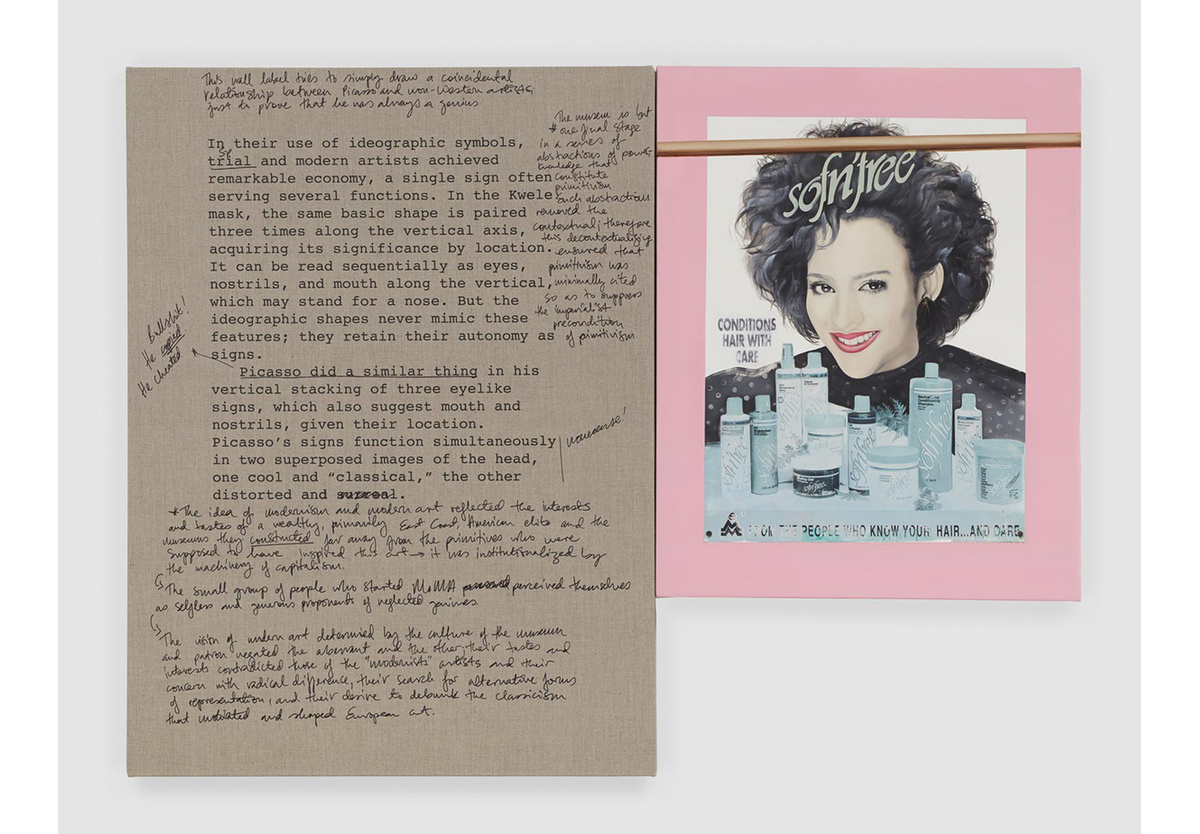 This wall label tries to simply draw a coincidental
relationship between Picasso and non-Western artists
just to prove that he was always a genius
In their use of ideographic symbols,
trial and modern artists achieved
remarkable economy, a single sign often
serving several functions. In the Kwele
mask, the same basic shape is paired
three times along the vertical axis,
acquiring its significance by location.
It can be read sequentially as eyes,
nostrils, and mouth along the vertical,
which may stand for a nose. But the
ideographic shapes never mimic these
features; they retain their autonomy as
signs.
Picasso did a similar thing in his
vertical stacking of three eyelike
signs, which also suggest mouth and
nostrils, given their location.
Picasso's signs function simultaneously
in two superposed images of the head,
one cool and “classical,” the other
distorted and surreal.
The museum is but
* one final stage
in a series of
abstractions of power
knowledge that
constitute
primitivism
such abstraction
removed the
contextual; therefore
this decontextualizing
ensured that
primitivism was
minimally cited
so as to suppress
the imperialist
precondition
of primitivism
Bullshit!
He copied
He cheated
nonsense!
*The idea of modernism and modern art reflected the interests
and tastes of a wealthy, primarily East Coast, American elite and the
museums they constructed far away from the primitives who were
supposed to have inspired this art → it was institutionalized by
the machinery of capitalism.
The small group of people who started MoMA perceived themselves
as selfless and generous proponents of neglected geniuses
The vision of modern art determined by the culture of the museum
and patron negated the aberrant and the other; their tastes and
interests contradicted those of the "modernists" artists and their
concern with radical difference, their search for alternative forms
of representation, and their desire to debunk the classicism
that motivated and shaped European art.
sofn'free
CONDITIONS
HAIR WITH
CARE
sofn'free
FROM THE PEOPLE WHO KNOW YOUR HAIR...AND CARE